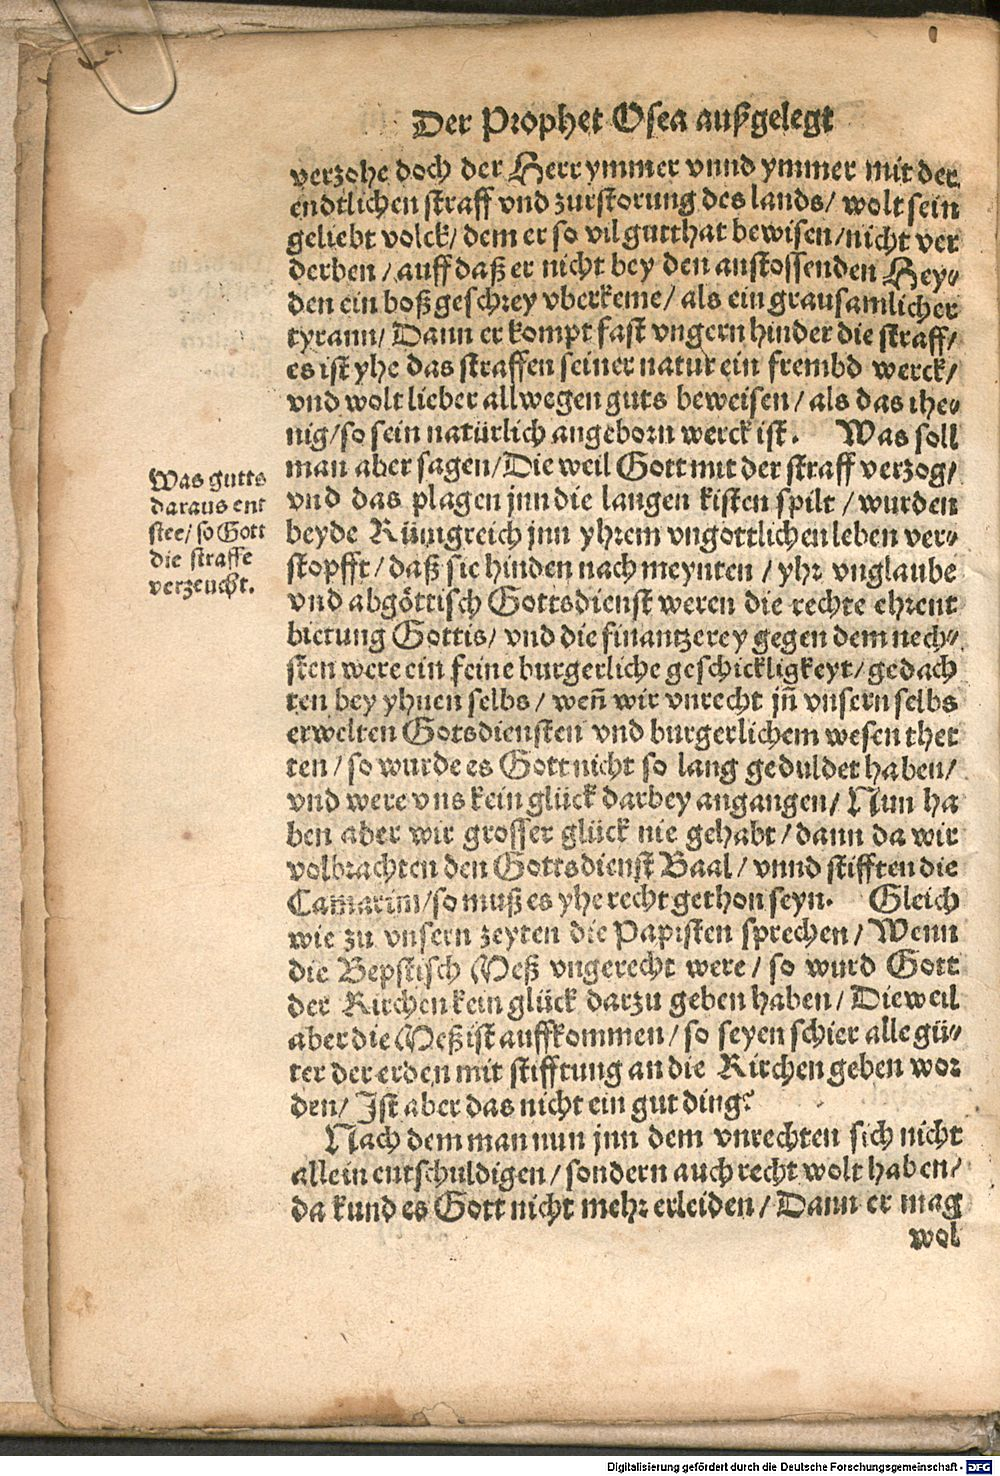 Der Prophet Osea außgelegt
verzohe doch der Herr ymmer vnnd ymmer mit der
endtlichen straff vnd zurstorung des lands/ wolt sein
geliebt volck/ dem er so vil gutthat bewisen/nicht ver
derben / auff daß er nicht bey den anstossenden Hey⸗
den ein boß geschrey vberkeme/ als ein grausamlicher
tyrann/ Dann er kompt fast vngern hinder die straff/
es ist yhe das straffen seiner natur ein frembd werck/
vnd wolt lieber allwegen guts beweisen/ als das ihe⸗
nig/so sein natürlich angeborn werck ist. Was soll
man aber sagen/Die weil Gott mit der straff verzog/
vnd das plagen jnn die langen kisten spilt / wurden
beyde Künigreich jnn yhrem vngottlichen leben ver⸗
stopfft/ daß sie hinden nach meynten / yhr vnglaube
vnd abgöttisch Gottsdienst weren die rechte ehrent
bietung Gottis/ vnd die finantzerey gegen dem nech⸗
sten were ein feine burgerliche geschickligkeyt/ gedach
ten bey yhnen selbs / weñ wir vnrecht jñ vnsern selbs
erwelten Gotsdiensten vnd burgerlichem wesen thet
ten / so wurde es Gott nicht so lang geduldet haben/
vnd were vns kein glück darbey angangen/ Nun ha
ben aber wir grosser glück nie gehabt / dann da wir
volbrachten den Gottsdienst Baal/ vnnd stifften die
Camarim/so muß es yhe recht gethon seyn. Gleich
wie zu vnsern zeyten die Papisten sprechen/ Wenn
die Bepstisch Meß vngerecht were / so wurd Gott
der Kirchen kein glück darzu geben haben/ Dieweil
aber die Meß ist auffkommen/ so seyen schier alle gü⸗
ter der erden mit stifftung an die Kirchen geben wor
den/ Ist aber das nicht ein gut ding?
Nach dem man nun jnn dem vnrechten sich nicht
allein entschuldigen/sondern auch recht wolt haben/
da kund es Gott nicht mehr erleiden/ Dann er mag
wol
Was gutts
daraus ent
stee/ so Gott
die straffe
verzeucht.
Digitalisierung gefördert durch die Deutsche Forschungsgemeinschaft - DFG